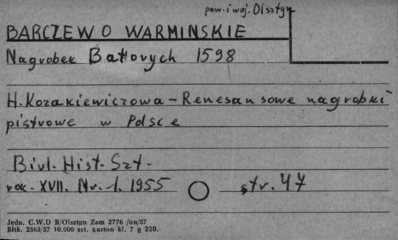 pow. i woj. Olsztyn
BARCZEWO WARMIŃSKIE
Nagrobek Batorych 1598
H. Kozakiewiczowa - Renesansowe nagrobki
piętrowe w Polsce
Biul. Hist. Szt.
rok. XVII. Nr. 1. 1955 str. 47
Jedn. C.W.D B/Olsztyn Zam 2776 /on/57
Bltk. 2563/57 10.000 szt. karton kl. 7 g 220.